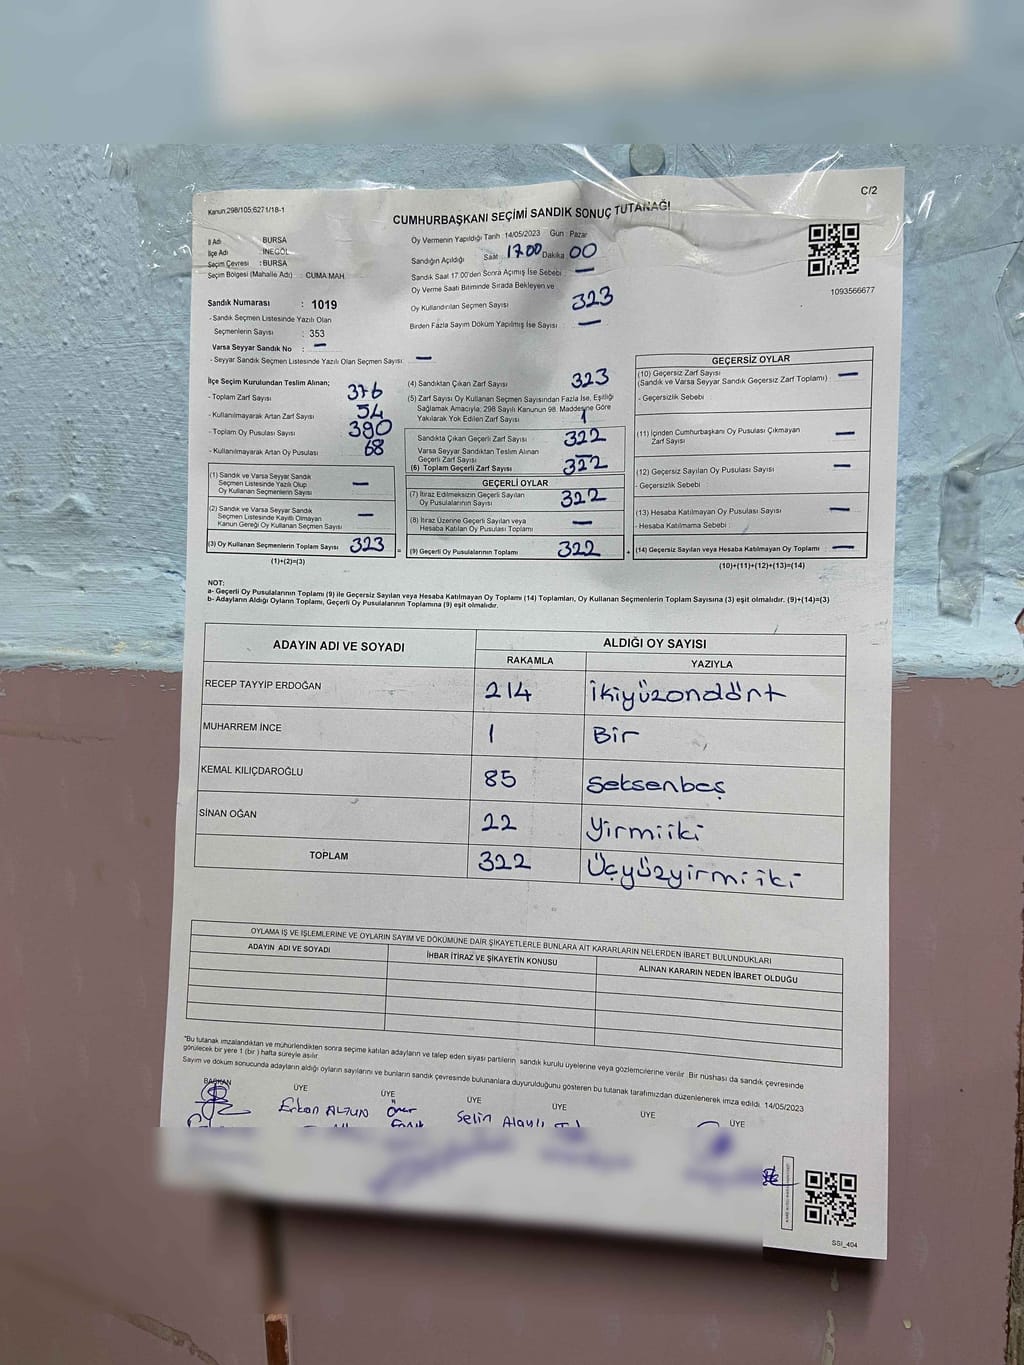 C/2
Kanun:298/105;6271/18-1
CUMHURBAŞKANI SEÇİMİ SANDIK SONUÇ TUTANAĞI
İl Adı BURSA
İlçe Adı İNEGÖL
Seçim Çevresi : BURSA
Seçim Bölgesi (Mahalle Adı) : CUMA MAH.
Oy Vermenin Yapıldığı Tarih :14/05/2023 Gün : Pazar
Sandığın Açıldığı Saat 17.00 Dakika 00
Sandık Saat 17:00'den Sonra Açımış İse Sebebi : —
Oy Verme Saati Bitiminde Sırada Bekleyen ve
Oy Kullandırılan Seçmen Sayısı 323
Birden Fazla Sayım Döküm Yapılmış İse Sayısı : —
1093566677
Sandık Numarası : 1019
- Sandık Seçmen Listesinde Yazılı Olan
Seçmenlerin Sayısı : 353
Varsa Seyyar Sandık No : —
- Seyyar Sandık Seçmen Listesinde Yazılı Olan Seçmen Sayısı: —
İlçe Seçim Kurulundan Teslim Alınan;
- Toplam Zarf Sayısı 376
- Kullanılmayarak Artan Zarf Sayısı 54
- Toplam Oy Pusulası Sayısı 390
- Kullanılmayarak Artan Oy Pusulası 68
(1) Sandık ve Varsa Seyyar Sandık
Seçmen Listesinde Yazılı Olup
Oy Kullanan Seçmenlerin Sayısı —
(2) Sandık ve Varsa Seyyar Sandık
Seçmen Listesinde Kayıtlı Olmayan
Kanun Gereği Oy Kullanan Seçmen Sayısı —
(3) Oy Kullanan Seçmenlerin Toplam Sayısı 323 =
(1)+(2)=(3)
(4) Sandıktan Çıkan Zarf Sayısı 323
(5) Zarf Sayısı Oy Kullanan Seçmen Sayısından Fazla İse, Eşitliği
Sağlamak Amacıyla; 298 Sayılı Kanunun 98. Maddesine Göre
Yakılarak Yok Edilen Zarf Sayısı 1
Sandıkta Çıkan Geçerli Zarf Sayısı 322
Varsa Seyyar Sandıktan Teslim Alınan
Geçerli Zarf Sayısı —
(6) Toplam Geçerli Zarf Sayısı 322
GEÇERLİ OYLAR
(7) İtiraz Edilmeksizin Geçerli Sayılan
Oy Pusulalarının Sayısı 322
(8) İtiraz Üzerine Geçerli Sayılan veya
Hesaba Katılan Oy Pusulası Toplamı —
(9) Geçerli Oy Pusulalarının Toplamı 322 +
GEÇERSİZ OYLAR
(10) Geçersiz Zarf Sayısı
(Sandık ve Varsa Seyyar Sandık Geçersiz Zarf Toplamı) —
- Geçersizlik Sebebi :
(11) İçinden Cumhurbaşkanı Oy Pusulası Çıkmayan
Zarf Sayısı —
(12) Geçersiz Sayılan Oy Pusulası Sayısı —
- Geçersizlik Sebebi :
(13) Hesaba Katılmayan Oy Pusulası Sayısı —
- Hesaba Katılmama Sebebi :
(14) Geçersiz Sayılan veya Hesaba Katılmayan Oy Toplamı —
(10)+(11)+(12)+(13)=(14)
NOT:
a- Geçerli Oy Pusulalarının Toplamı (9) ile Geçersiz Sayılan veya Hesaba Katılmayan Oy Toplamı (14) Toplamları, Oy Kullanan Seçmenlerin Toplam Sayısına (3) eşit olmalıdır. (9)+(14)=(3)
b- Adayların Aldığı Oyların Toplamı, Geçerli Oy Pusulalarının Toplamına (9) eşit olmalıdır.
ADAYIN ADI VE SOYADI
ALDIĞI OY SAYISI
RAKAMLA YAZIYLA
RECEP TAYYİP ERDOĞAN 214 ikiyüzondört
MUHARREM İNCE 1 Bir
KEMAL KILIÇDAROĞLU 85 Seksenbeş
SİNAN OĞAN 22 Yirmiiki
TOPLAM 322 Üçyüzyirmiiki
OYLAMA İŞ VE İŞLEMLERİNE VE OYLARIN SAYIM VE DÖKÜMÜNE DAİR ŞİKAYETLERLE BUNLARA AİT KARARLARIN NELERDEN İBARET BULUNDUKLARI
ADAYIN ADI VE SOYADI İHBAR İTİRAZ VE ŞİKAYETİN KONUSU ALINAN KARARIN NEDEN İBARET OLDUĞU
*Bu tutanak imzalandıktan ve mühürlendikten sonra seçime katılan adayların ve talep eden siyasi partilerin sandık kurulu üyelerine veya gözlemcilerine verilir. Bir nüshası da sandık çevresinde
görülecek bir yere 1 (bir) hafta süreyle asılır.
Sayım ve döküm sonucunda adayların aldığı oyların sayılarını ve bunların sandık çevresinde bulunanlara duyurulduğunu gösteren bu tutanak tarafımızdan düzenlenerek imza edildi. 14/05/2023
BAŞKAN ÜYE ÜYE ÜYE ÜYE ÜYE ÜYE
Erkan ALTUN Ömer Selin Alaylı
SSI_404